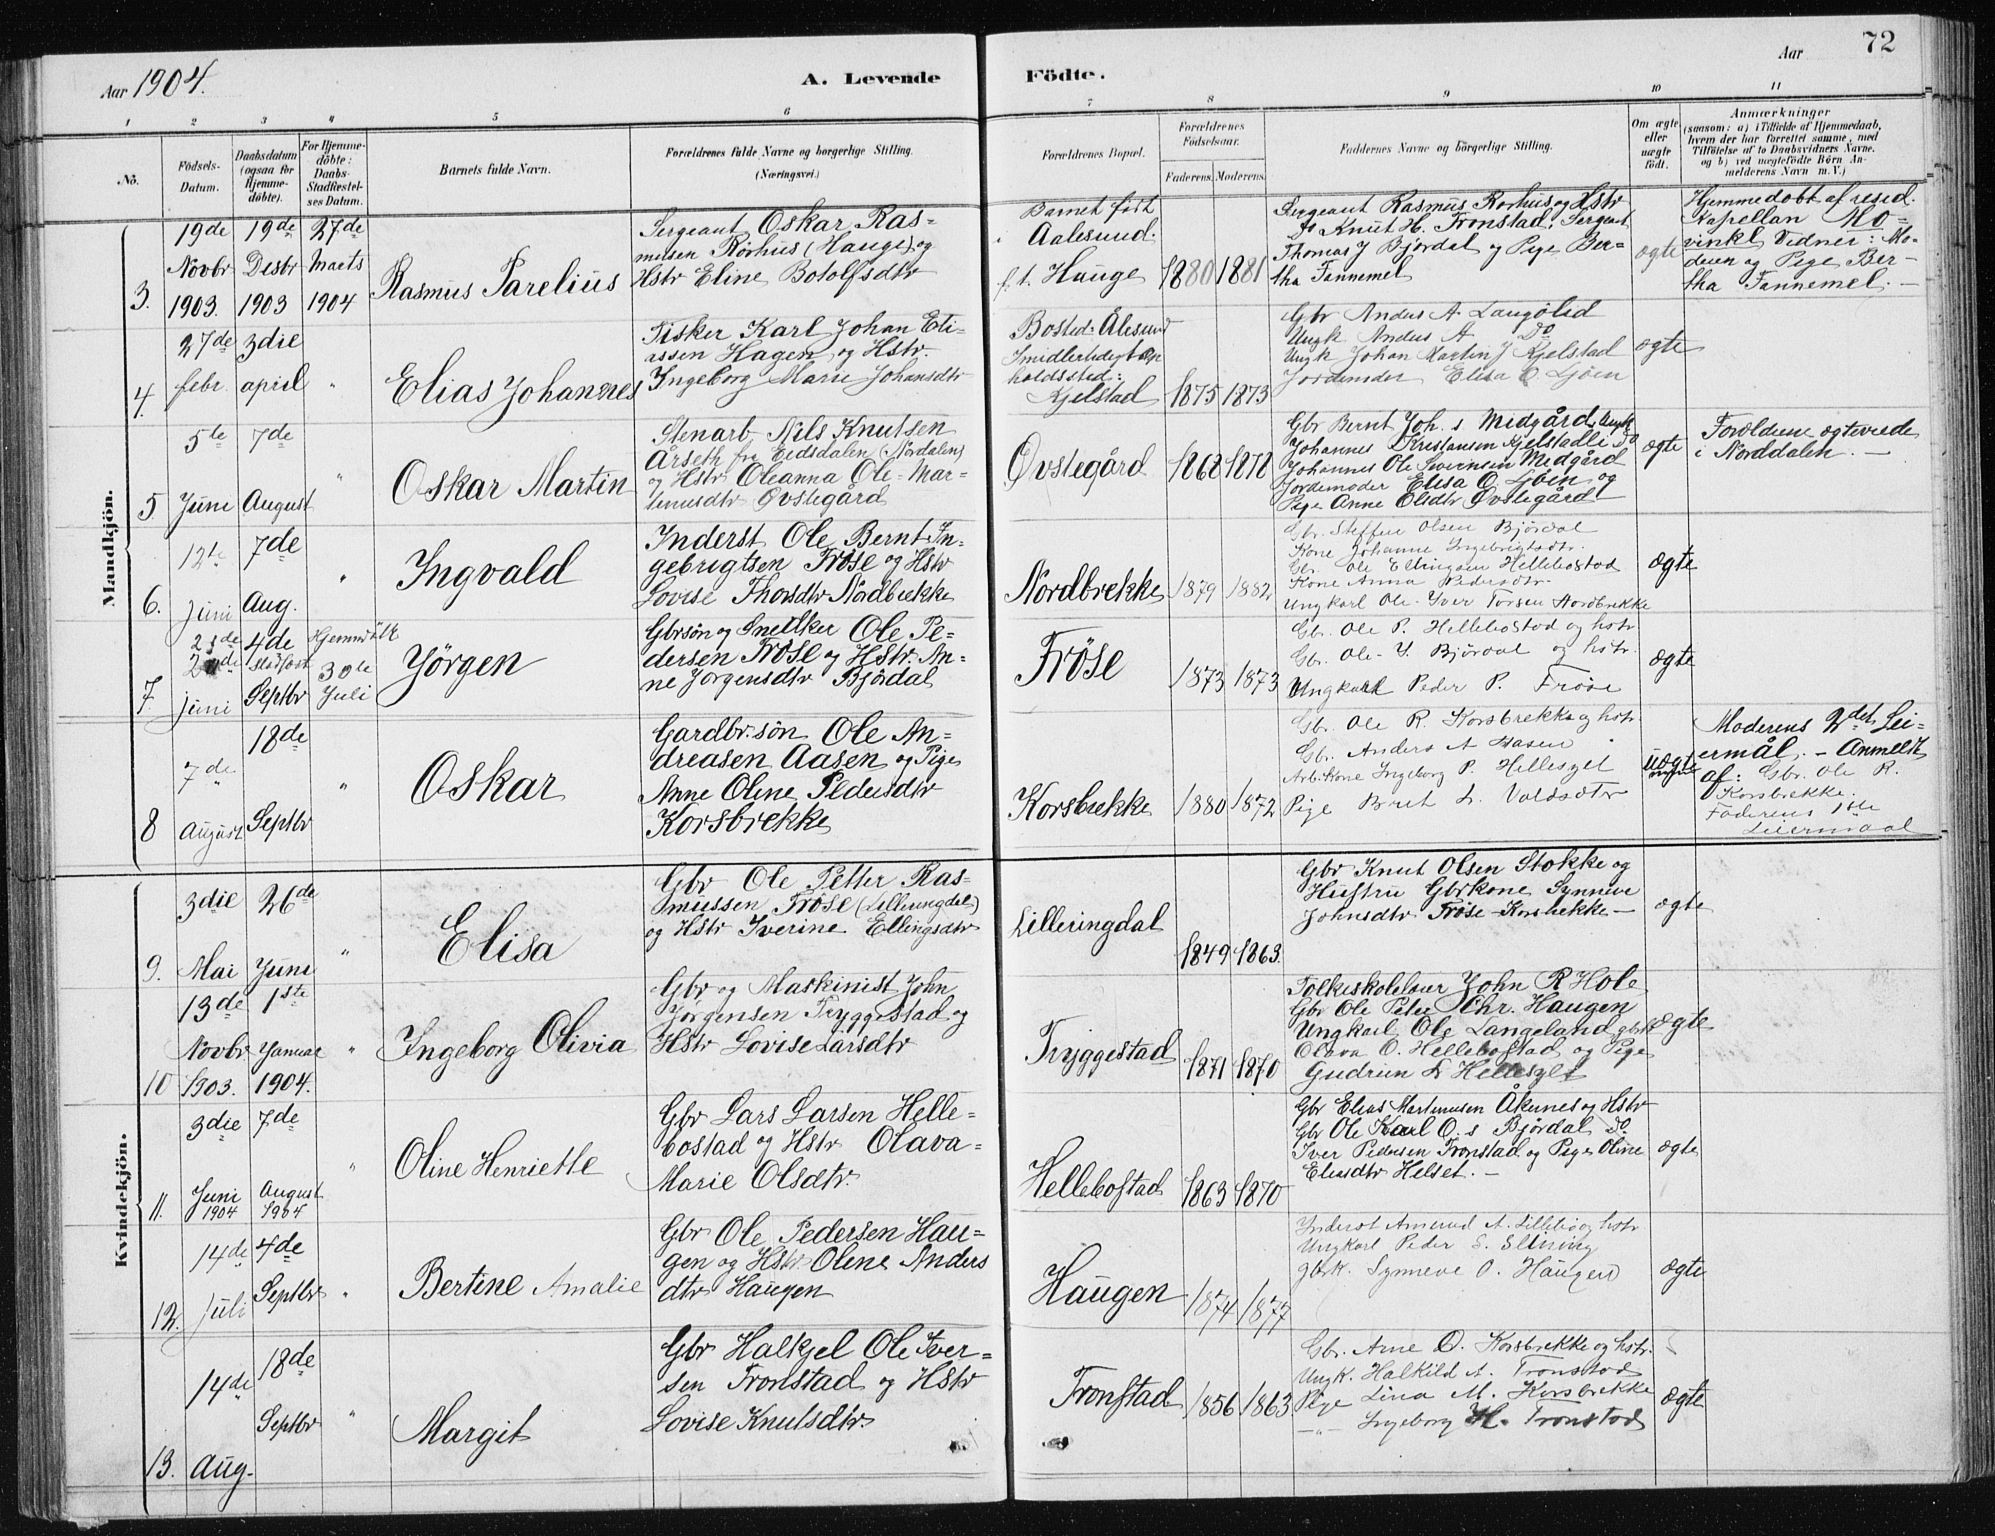 Aar 1904.
A. Levende
Födte.
Aar
72
1 2 3 4 5 6 7 8 9 10 11
No.
Födsels-Datum.
Daabsdatum (ogsaa for Hjemme-döbte).
For Hjemme-döbte: Daabs-Stadfæstel-ses Datum.
Barnets fulde Navn.
Forældrenes fulde Navne og borgerlige Stilling.
(Næringsvei.)
Forældrenes Bopæl.
Forældrenes Födselsaar.
Faderens. Moderens.
Faddernes Navne og börgerlige Stilling.
Om ægte eller uægte födt.
Anmærkninger
(saasom: a) i Tilfælde af Hjemmedaab, hvem der har forrettet samme, med Tilföielse af to Daabsvidners Navne, og b) ved uægtefödte Börn Anmelderens Navn m. V.)
Mandkjön.
3.
19de Novbr 1903.
19de Desbr 1903
27de Marts 1904
Rasmus Parelius
Sergeant Oskar Ras-
musen Rörhus (Hauge) og
Hstr Eline Botolfsdtr
Barnet födt
i Aalesund.
f. t. Hauge
1880 1881
Sergeant Rasmus Rorhus og Hstr
Do Knut H. Tronstad, Sergeant
Thomas J Bjordal og Pige Ber-
tha Fannemel
ægte
Hjemmedöbt af resid.
Kapellan Mo-
vinkl Vidner: Mo-
deren og Pige Ber-
tha Fannemel. -
4.
27de febr.
3die april
"
Elias Johannes
Fisker Karl Johan Eli-
assen Hagen og Hstr.
Ingeborg Marie Johansdtr
Bosted: Ålesund
Imidlertidigt Op
holdssted:
Kjelstad
1875 1873
Gbr Anders A Langölid
Ungk Anders A Do
Ungk Johan Martin J Kjelstad
Jordemoder Elisa O Ljöen
ægte
5
5te Juni
7de August
"
Oskar Martin
Stenarb. Nils Knutsen
Årseth fra Eidsdalen (Nördalen)
og Hstr Oleanna Ole-Mar-
tinusdtr Övstegård
Övstegård
1868 1878
Gbr Bernt Joh. s Midgård, Ungk
Johannes Kristiansen Kjelstadli Do
Johannes Ole Severinsen Midgård
Jordemoder Elisa O. Ljöen og
Pige Anne Elidtr Övstegård
ægte
Foreldrene ægteviede
i Norddalen. -
6.
12te Juni
7de Aug.
"
Ingvald
Inderst Ole Bernt In-
gebrigtsen Fröse og Hstr
Lovise Thorsdtr Nordbrekke
Nordbrekke
1879 1882
Gbr. Steffen Olsen Björdal
Kone Johanne Ingebrigtsdtr.
Gbr. Ole Ellingsen Hellebostad
Kone Anna Pedersdtr.
Ungkarl Ole-Iver Torsen Nordbrekke
ægte
7.
Juni
4de Stadfæst Septbr
Hjemmedöbt 30te Juli
Jörgen
Gbrsön og Snedker Ole Pe-
dersen Fröse og Hstr. An-
ne Jörgensdtr Björdal
Fröse
1873 1873
Gbr. Ole P. Hellebostad og hstr
Gbr. Ole-J. Björdal og hstr.
Ungkarl Peder P. Fröse
ægte
8
7de August
18de Septbr
"
Oskar
Gardbr.sön Ole An-
dreasen Aasen og Pige
Anne Oline Pedersdtr
Korsbrekke
Korsbrekke
1880 1872
Gbr. Ole R. Korsbrekke og hstr.
Gbr. Anders A Aasen
Arb.Kone Ingeborg P. Hellesylt
Pige Brit L. Valdsæter
uægte
Moderens 2det Lei-
ermål. - Anmeldt
af: Gbr. Ole R.
Korsbrekke.
Faderens 1ste
Leiermaal
Kvindekjön.
9.
3die Mai
26de Juni
"
Elisa
Gbr Ole Petter Ras-
mussen Fröse (Lilleringdal)
og Hstr Iverine Ellingsdtr
Lilleringdal
1849 1863.
Gbr Knut Olsen Stokke og
Hustru Gbrkone Synneve
Johnsdtr Fröse-Korsbrekke -
ægte
10
13de Novbr 1903.
1ste Januar 1904.
"
Ingeborg Olivia
Gbr og Maskinist John
Jörgensen Tryggestad og
Hstr Lovise Larsdtr
Tryggestad
1871 1870
Folkeskolelærer John R Hole
Gbr Ole Peter Chr. Haugen
Ungkarl Ole Langeland gbrk
Olava O. Hellebostad og Pige
Gudrun L Hellesylt
ægte
11.
3die Juni 1904
7de August 1904
"
Oline Henriette
Gbr Lars Larsen Helle-
bostad og Hstr Olava-
Marie Olsdtr.
Hellebostad
1863 1870
Gbr Elias Martinusen Åkernes og Hstr
Gbr Ole Karl O. s Björdal Do.
Iver Pedersen Tronstad og Pige Oline
Eliasdtr Helset. -
ægte
12.
14de Juli
4de Septbr
"
Bertine Amalie
Gbr Ole Pedersen Hau-
gen og Hstr Oline Anders
dtr Haugen
Haugen
1874 1877
Inderst Amund A. Lillebö og hstr
Ungkarl Peder S.
gbrk. Synneve O. Haugen
ægte
13.
14de Aug.
18de Septbr
"
Margit
Gbr Halkjel Ole Iver-
sen Tronstad og Hstr
Lovise Knutsdtr
Tronstad
1856 1863
Gbr. Arne O. Korsbrekke og hstr.
Ungk. Halkild A. Tronstad
Pige Lina M. Korsbrekke
-"- Ingeborg H. Tronstad
ægte